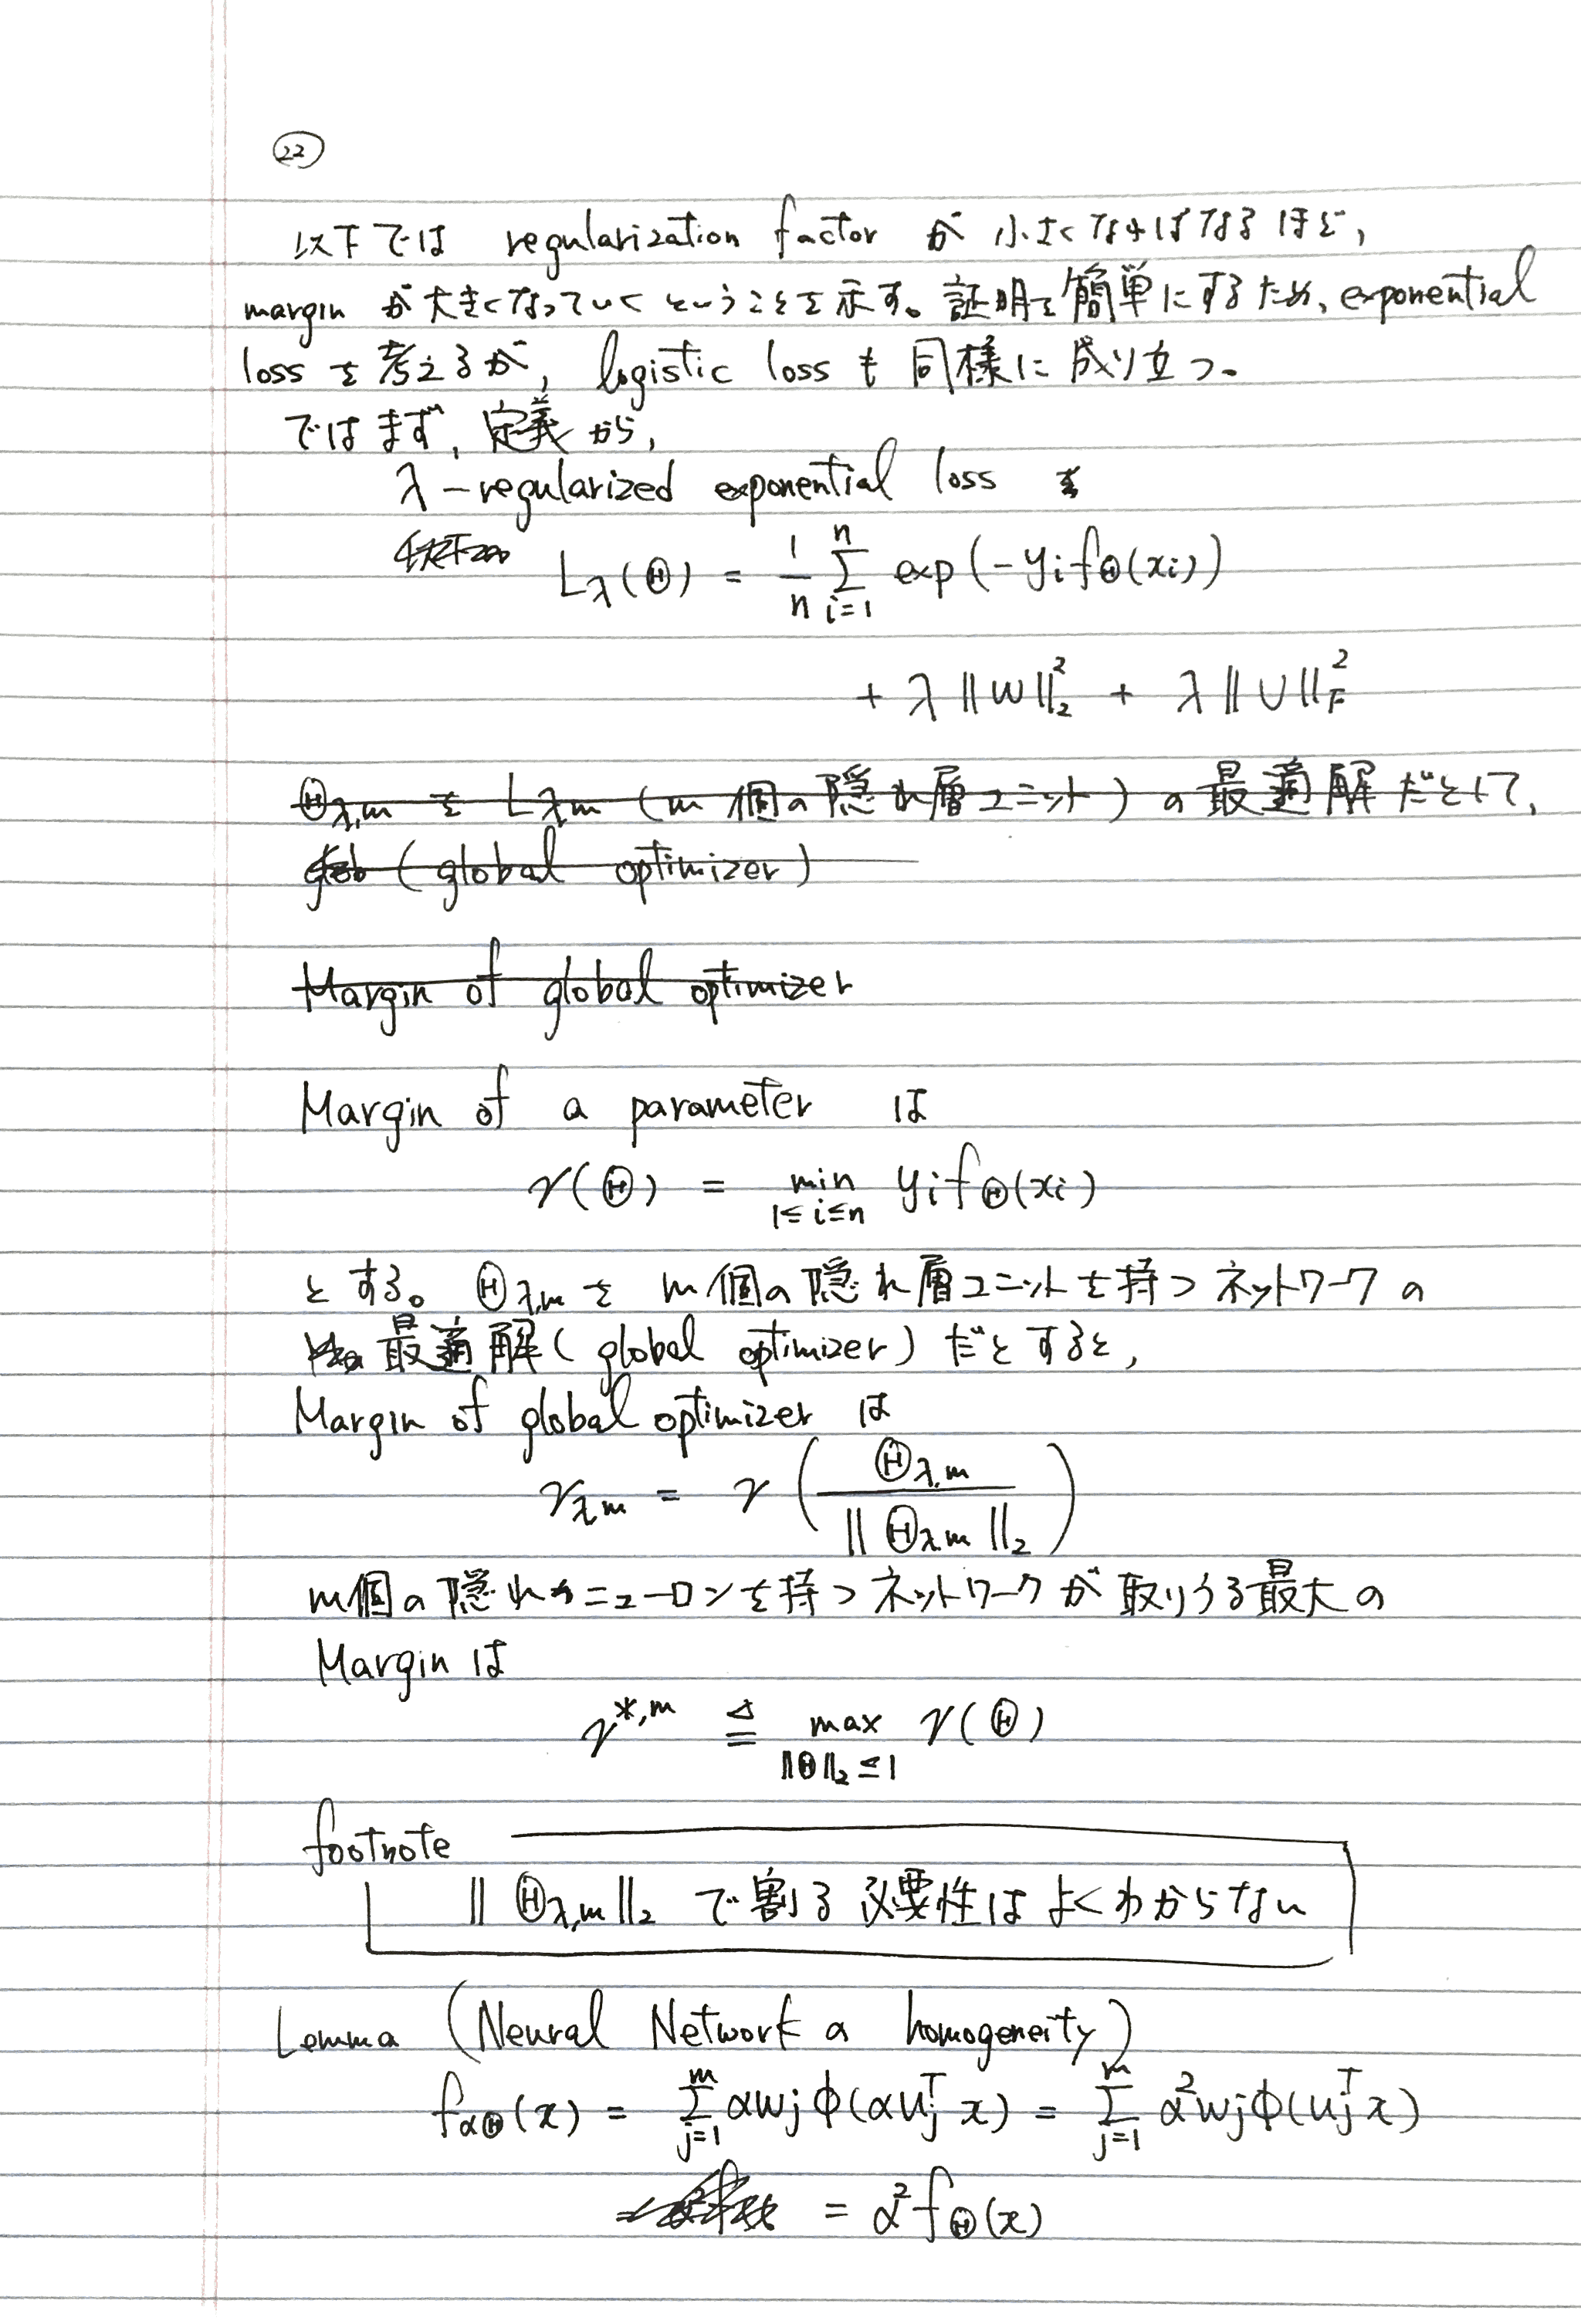 ㉒
以下では regularization factor が 小さくなればなるほど,
margin が大きくなっていくということを示す。証明を簡単にするため, exponential
loss を考えるが, logistic loss も同様に成り立つ。
ではまず, 定義から,
λ-regularized exponential loss を
L_λ(Θ) = 1/n Σ_{i=1}^{n} exp(-y_i f_Θ(x_i))
+ λ||w||_2^2 + λ||U||_F^2
Θ_{λ,m} を L_{λ,m} (m個の隠れ層ユニット) の最適解だとして,
(global optimizer)
Margin of global optimizer
Margin of a parameter は
γ(Θ) = min_{1≤i≤n} y_i f_Θ(x_i)
とする。Θ_{λ,m} を m個の隠れ層ユニットを持つネットワークの
最適解(global optimizer)だとすると,
Margin of global optimizer は
γ_{λ,m} = γ(Θ_{λ,m} / ||Θ_{λ,m}||_2)
m個の隠れニューロンを持つネットワークが取りうる最大の
Margin は
γ^{*,m} ≜ max_{||Θ||_2≤1} γ(Θ)
footnote
||Θ_{λ,m}||_2 で割る必要性はよくわからない
Lemma (Neural Network の homogeneity)
f_{αΘ}(x) = Σ_{j=1}^{m} αw_j φ(αu_j^T x) = Σ_{j=1}^{m} α^2 w_j φ(u_j^T x)
= α^2 f_Θ(x)